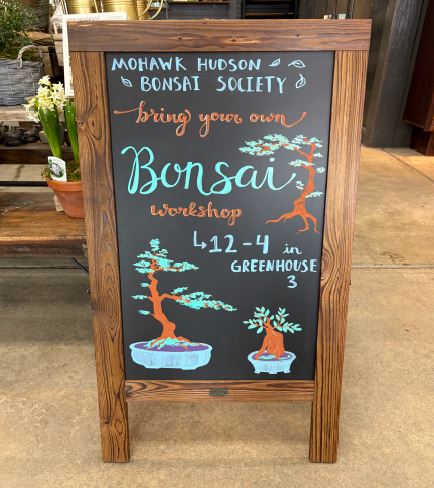 MOHAWK HUDSON
BONSAI SOCIETY
bring your own
Bonsai
workshop
↳12-4 in
GREENHOUSE
3